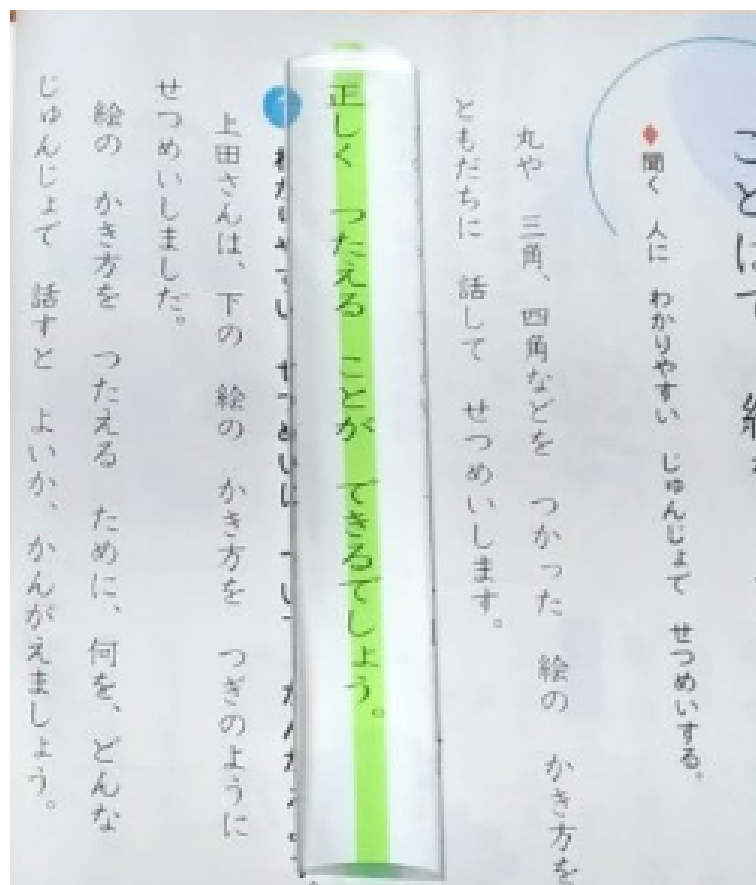 ことばで 絵を
聞く 人に わかりやすい じゅんじょで せつめいする。
丸や 三角、四角などを つかった 絵の かき方を
ともだちに 話して せつめいします。
正しく つたえる ことが できるでしょう。
上田さんは、下の 絵の かき方を つぎのように
せつめいしました。
絵の かき方を つたえる ために、何を、どんな
じゅんじょで 話すと よいか、かんがえましょう。